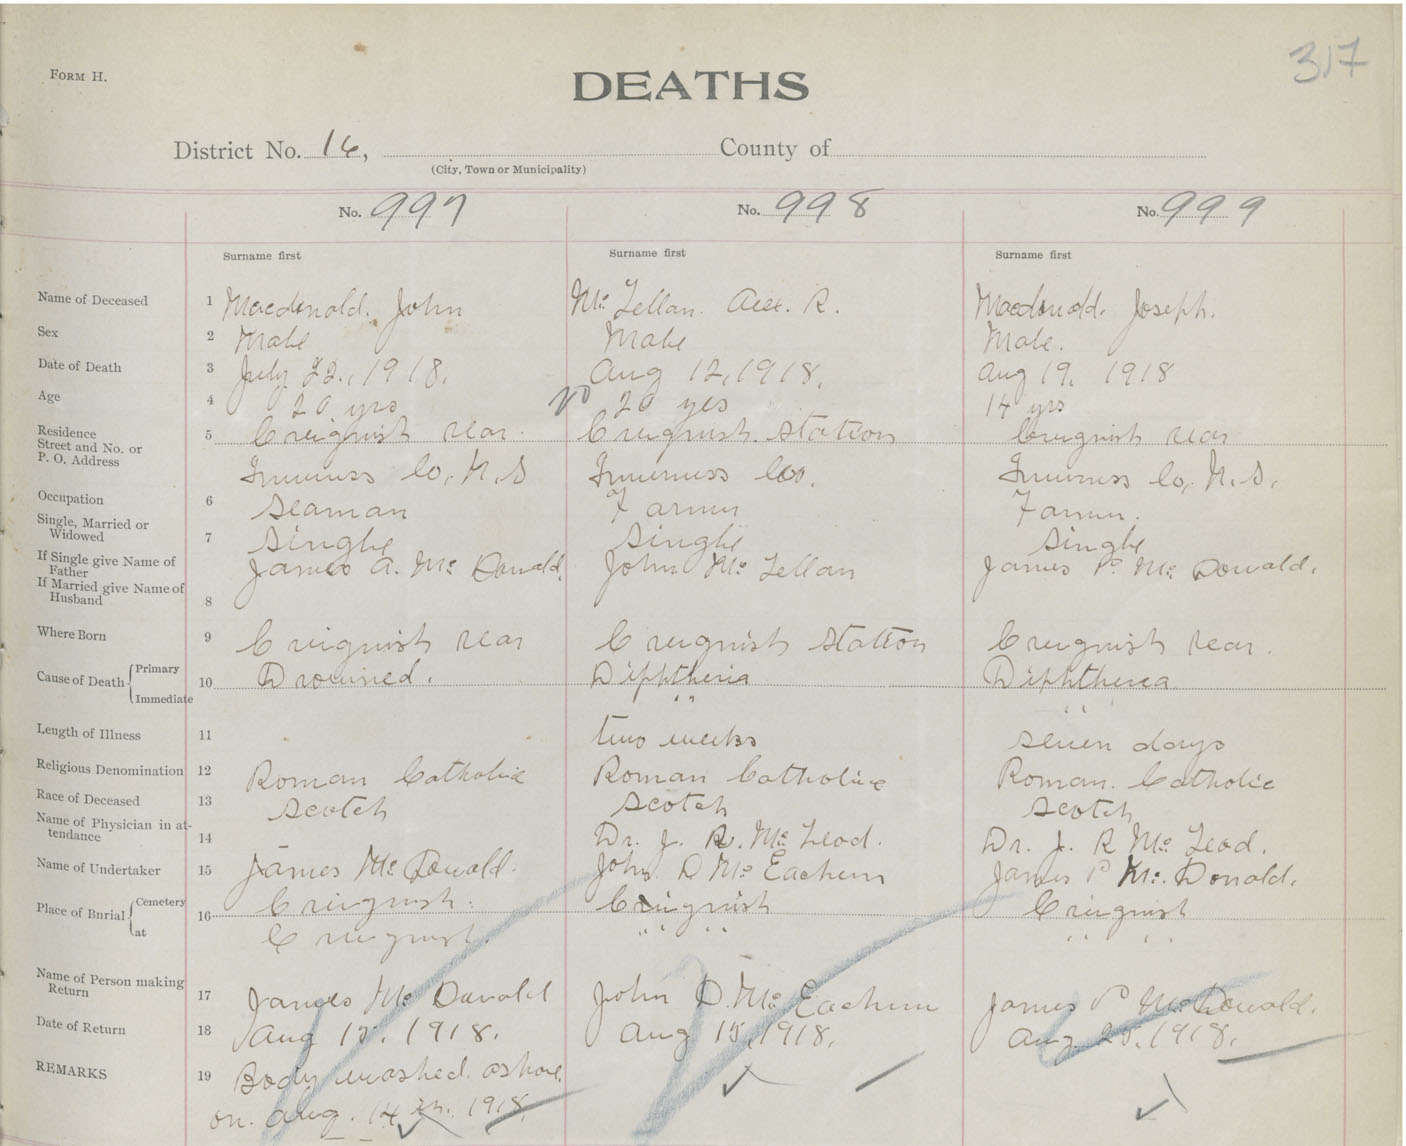 317
FORM H.
DEATHS
District No. 16,
County of
(City, Town or Municipality)
No. 997
No. 998
No. 999
Surname first
Surname first
Surname first
Name of Deceased 1 Macdonald. John Mc Lellan. Alex. R. Macdonald. Joseph.
Sex 2 Male Male Male.
Date of Death 3 July 22., 1918. Aug 12, 1918. Aug 19. 1918
Age 4 20 yrs 20 20 yrs 14 yrs
Residence
Street and No. or
P. O. Address
5 Creignish rear. Creignish Station Creignish rear
Inverness Co, N.S Inverness Co. Inverness Co, N.S.
Occupation 6 Seaman Farmer Farmer.
Single, Married or
Widowed
7 Single Single Single
If Single give Name of
Father
James A. Mc Donald. John Mc Lellan James P. Mc Donald.
If Married give Name of
Husband
8
Where Born 9 Creignish rear Creignish Station Creignish rear.
Cause of Death Primary 10 Drowned. Diphtheria Diphtheria
Immediate " "
Length of Illness 11 two weeks seven days
Religious Denomination 12 Roman Catholic Roman Catholic Roman. Catholic
Race of Deceased 13 Scotch Scotch Scotch
Name of Physician in at-
tendance
14 Dr. J. R. Mc Leod. Dr. J. R Mc Leod.
Name of Undertaker 15 James Mc Donald. John. D Mc Eachern James P Mc. Donald.
Place of Burial Cemetery 16 Creignish. Creignish Creignish
at Creignish. " " " "
Name of Person making
Return
17 James Mc Donald John D. Mc Eachern James P Mc Donald.
Date of Return 18 Aug 15. 1918. Aug 15, 1918. Aug 25. 1918.
REMARKS 19 Body washed ashore.
on. Aug. 14th. 1918